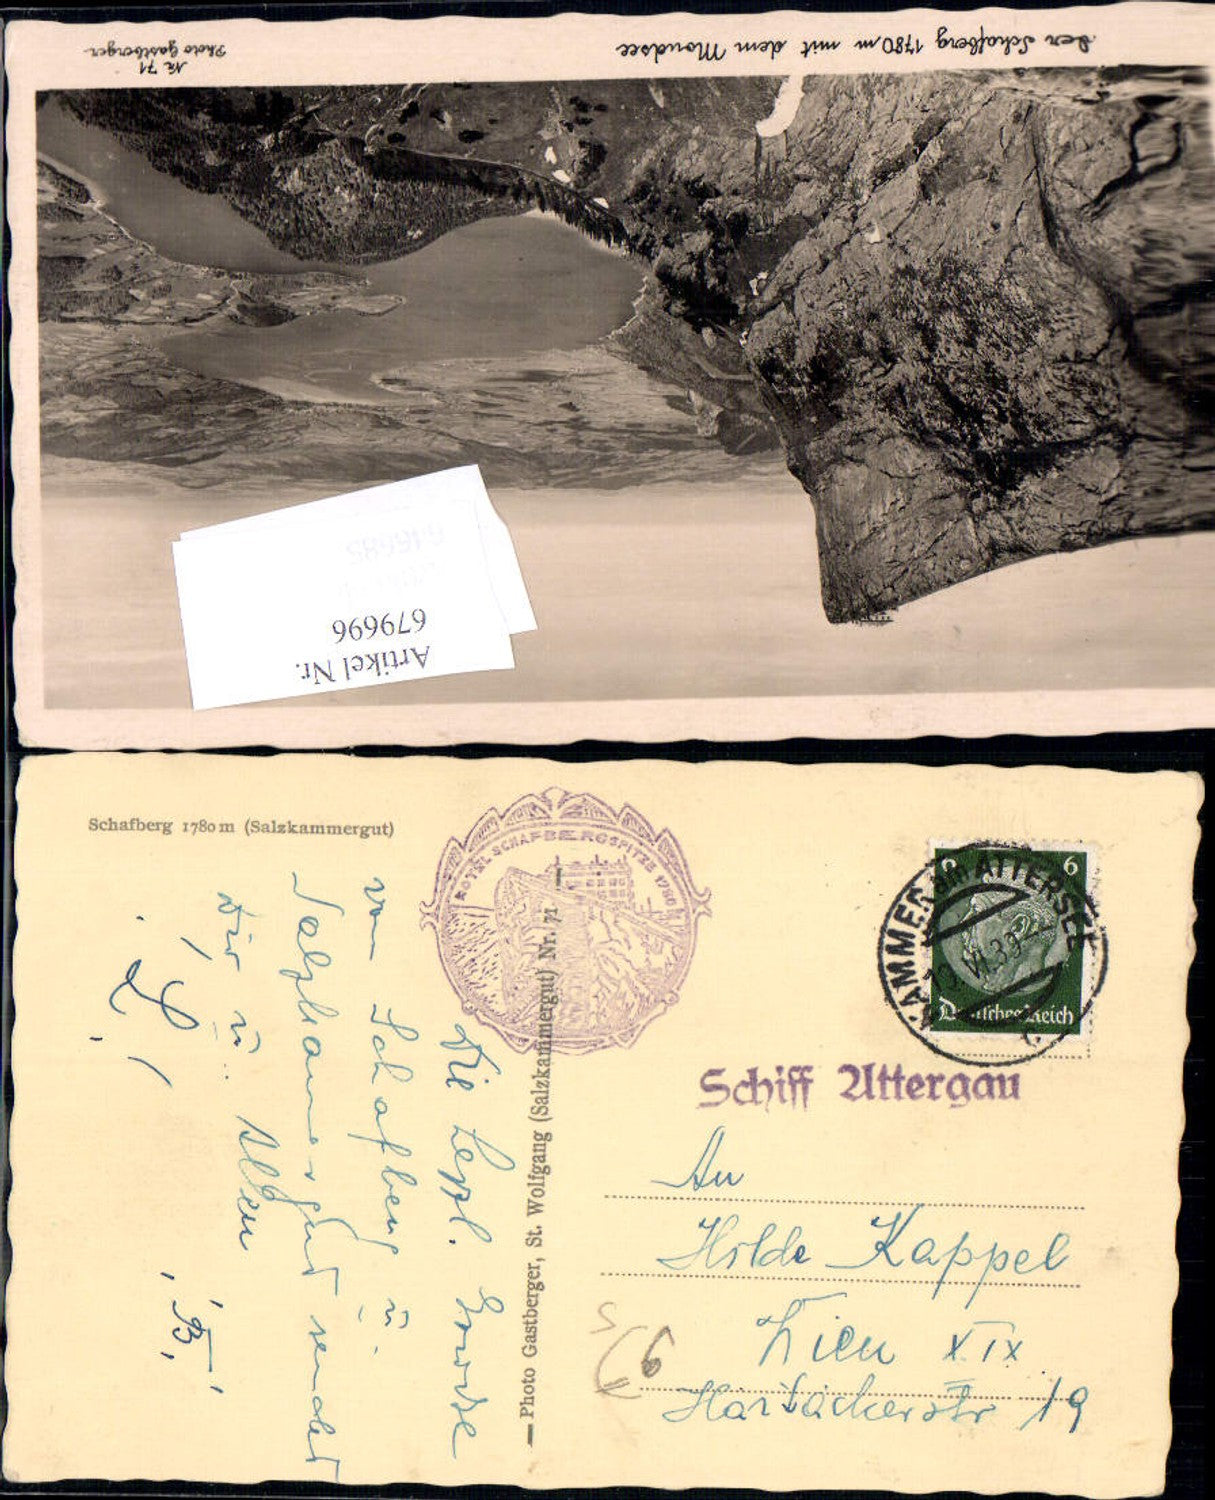 Der Schafberg 1780m mit dem Mondsee
No 71
Photo Gastberger
Artikel Nr.
679696
Schafberg 1780 m (Salzkammergut)
HOTEL SCHAFBERGSPITZE 1780
— Photo Gastberger, St. Wolfgang (Salzkammergut) Nr. 71 —
6
Deutsches Reich
KAMMER am ATTERSEE
13.VI.39
Schiff Attergau
An
Hilde Kappel
Wien XIX
Hartäckerstr 19
Die
von Schafberg u.
Salzkammergut sendet
Dir u. Allen
L.
B.